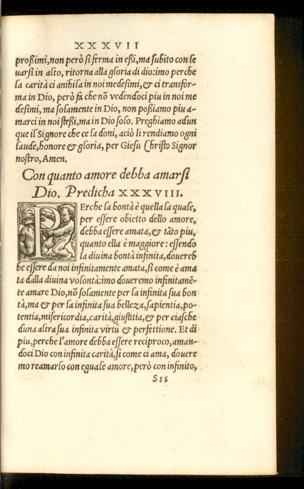 XXXVII
proßimi, non però si ferma in eßi, ma subito con le
uarsi in alto, ritorna alla gloria di dio: imo perche
la carità ci anihila in noi medesimi, & ci transfor-
ma in Dio, però fa che nõ vedendoci piu in noi me
desimi, ma solamente in Dio, non poßiamo piu a-
marci in noi steßi, ma in Dio solo. Preghiamo adun
que il Signore che ce la doni, acio li rendiamo ogni
laude, honore & gloria, per Giesu Christo Signor
nostro, Amen.
Con quanto amore debba amarsi
Dio. Predicha XXXVIII.
PErche la bontà è quella la quale,
per essere obietto dello amore,
debba essere amata, & tãto piu,
quanto ella è maggiore: essendo
la diuina bontà infinita, douereb
be essere da noi infinitamente amata, si come è ama
ta dalla diuina volontà: imo doueremo infinitamẽ-
te amare Dio, nõ solamente per la infinita sua bon
tà, ma & per la infinita sua belleza, sapientia, po-
tentia, misericordia, carità, giustitia, & per ciasche
duna altra sua infinita virtù & perfettione. Et di
piu, perche l'amore debba essere reciproco, aman-
doci Dio con infinita carità, si come ci ama, douere
mo reamarlo con eguale amore, però con infinito,
Sss